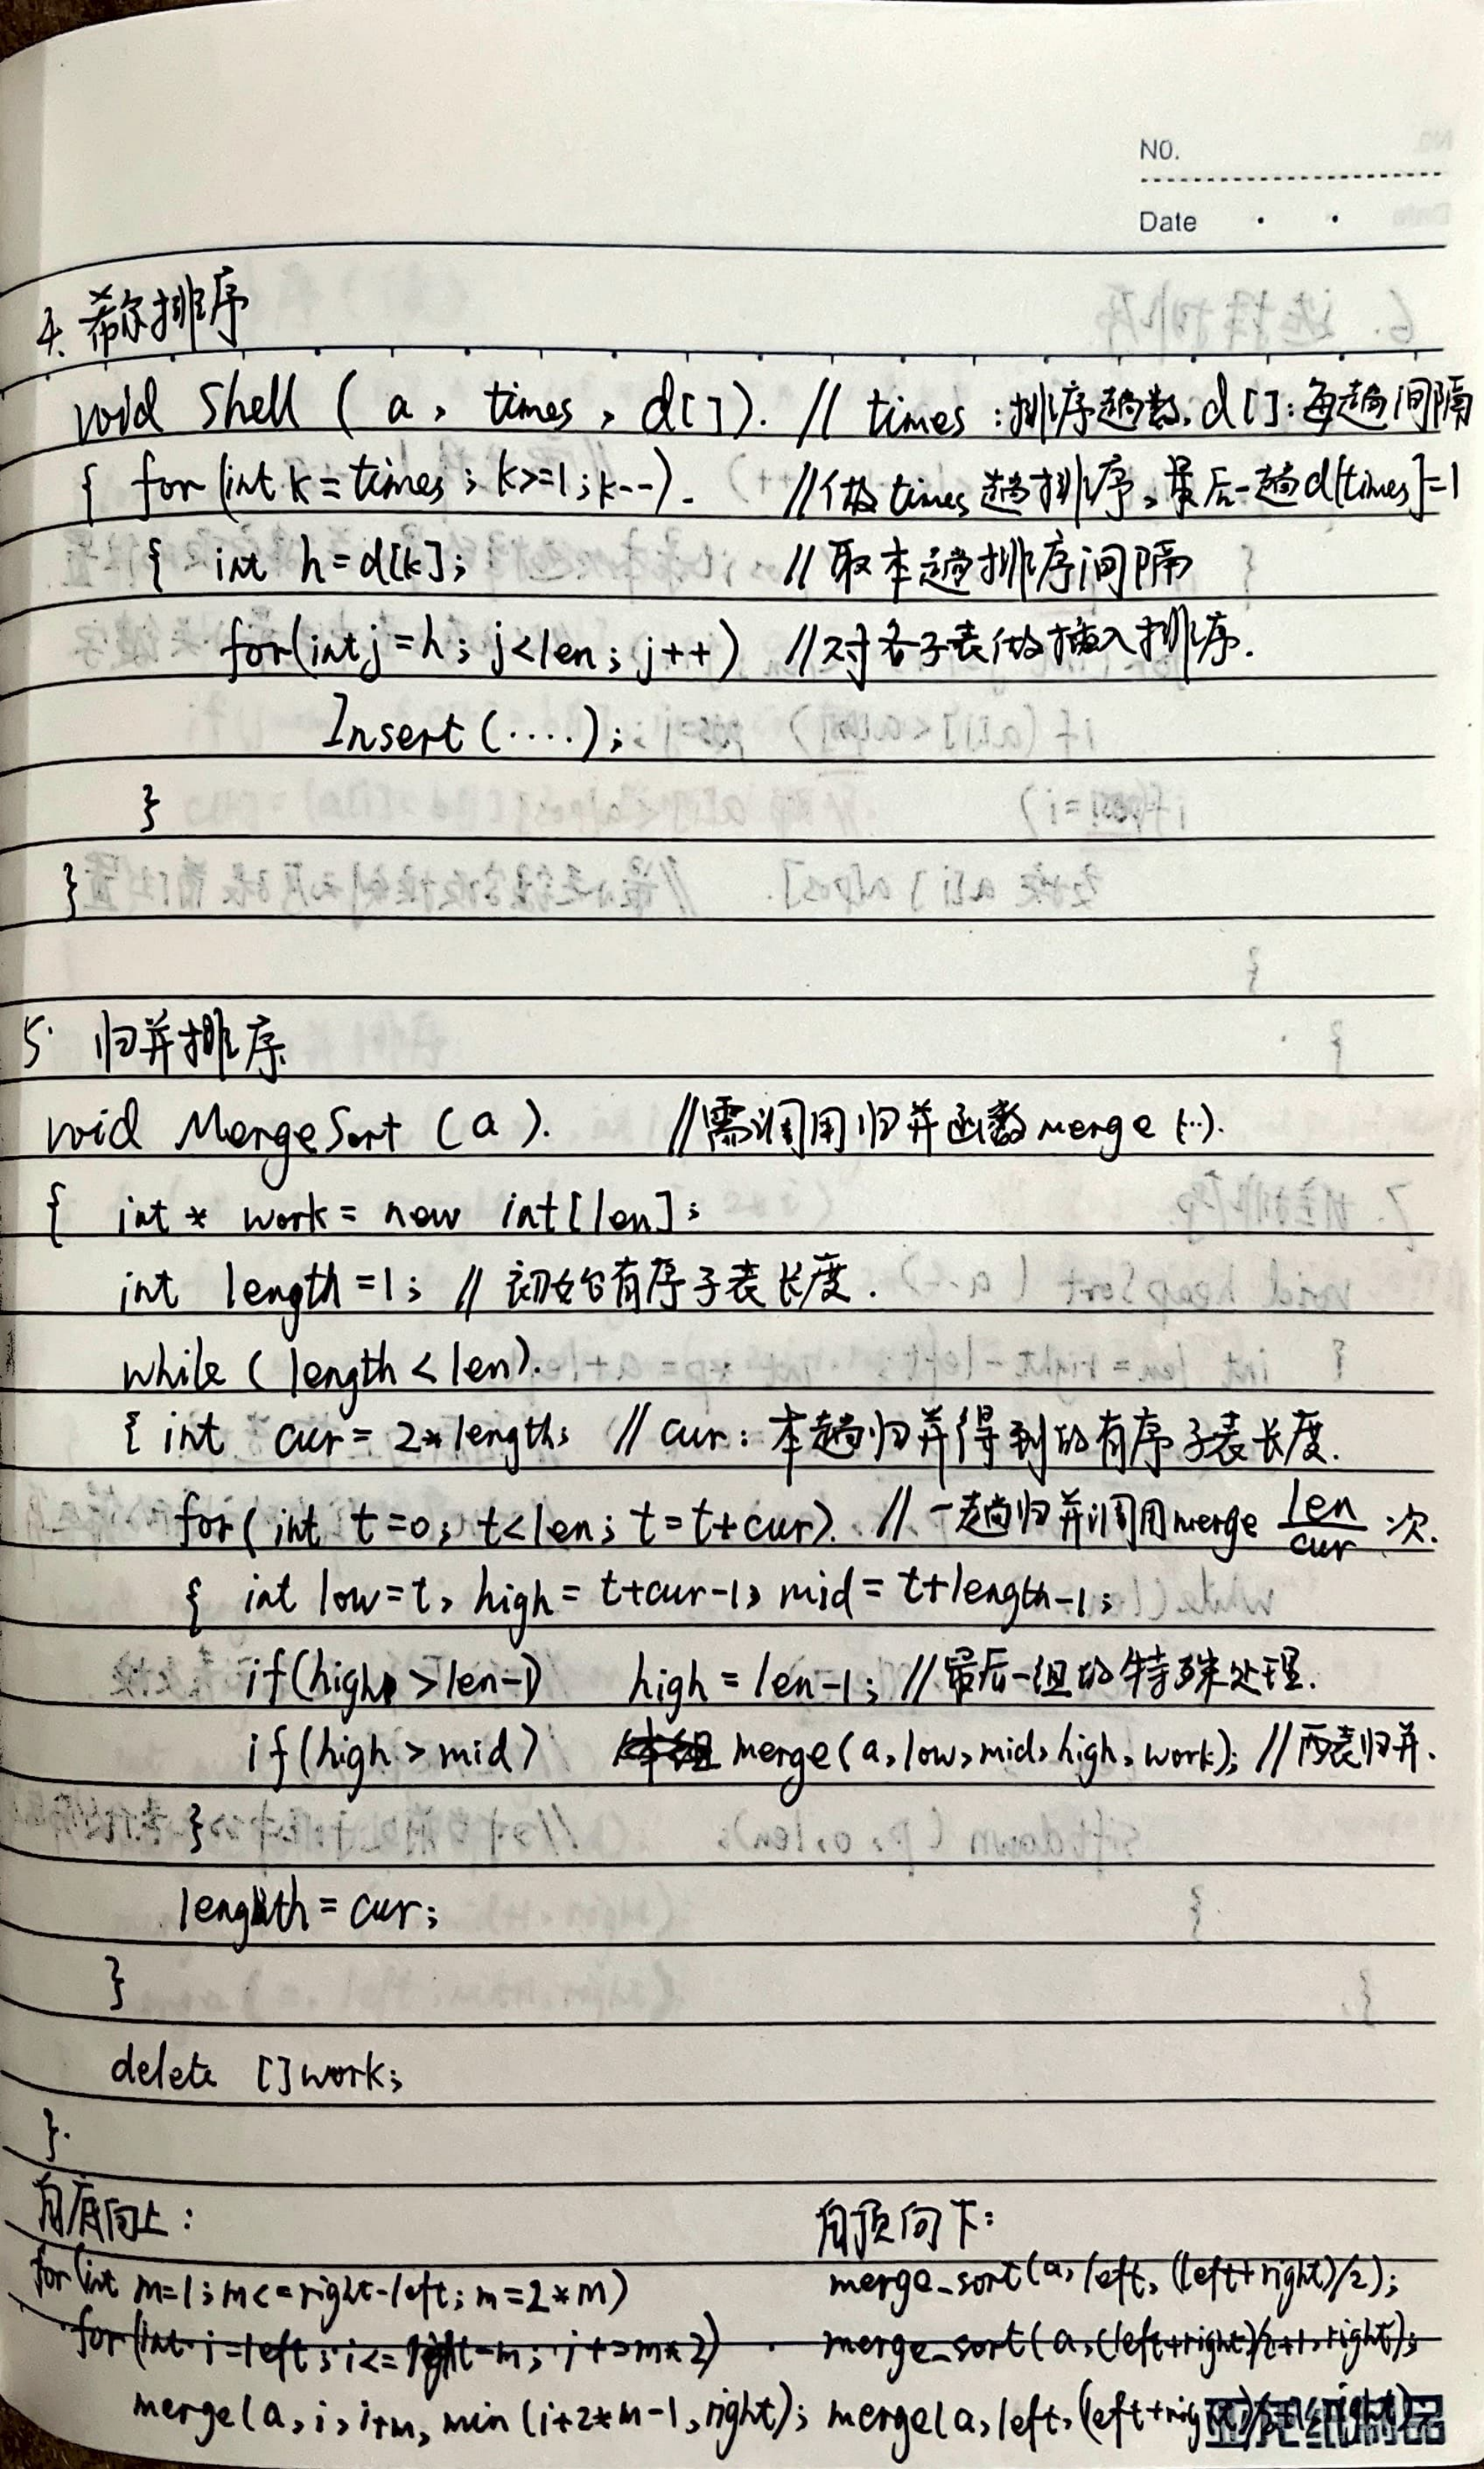 NO.
Date
4. 希尔排序
void Shell ( a , times , d[] ). // times :排序趟数, d[]:每趟间隔
{ for (int k = times ; k>=1 ; k--). //做times趟排序,最后一趟d[times]=1
{ int h=d[k]; //取本趟排序间隔
for(int j=h; j<len; j++) //对各子表做插入排序.
Insert(····);
}
}
5. 归并排序
void MergeSort (a). //需调用归并函数merge(··).
{ int * work = new int[len];
int length=1; // 初始有序子表长度.
while ( length < len).
{ int cur = 2*length; // cur: 本趟归并得到的有序子表长度.
for( int t=0; t<len; t=t+cur). // 一趟归并调用merge len/cur 次.
{ int low=t, high = t+cur-1, mid = t+length-1;
if(high >len-1) high = len-1; //最后一组的特殊处理.
if(high > mid) merge(a,low,mid,high,work); //两表归并.
}
length = cur;
}
delete []work;
}.
自底向上: 自顶向下:
for(int m=1; m<=right-left; m=2*m) merge_sort(a,left,(left+right)/2);
for(int i=left; i<=right-m; i+=m*2) merge_sort(a,(left+right)/2+1,right);
merge(a,i,i+m, min(i+2*m-1,right); merge(a,left,(left+right)/2+1,right)